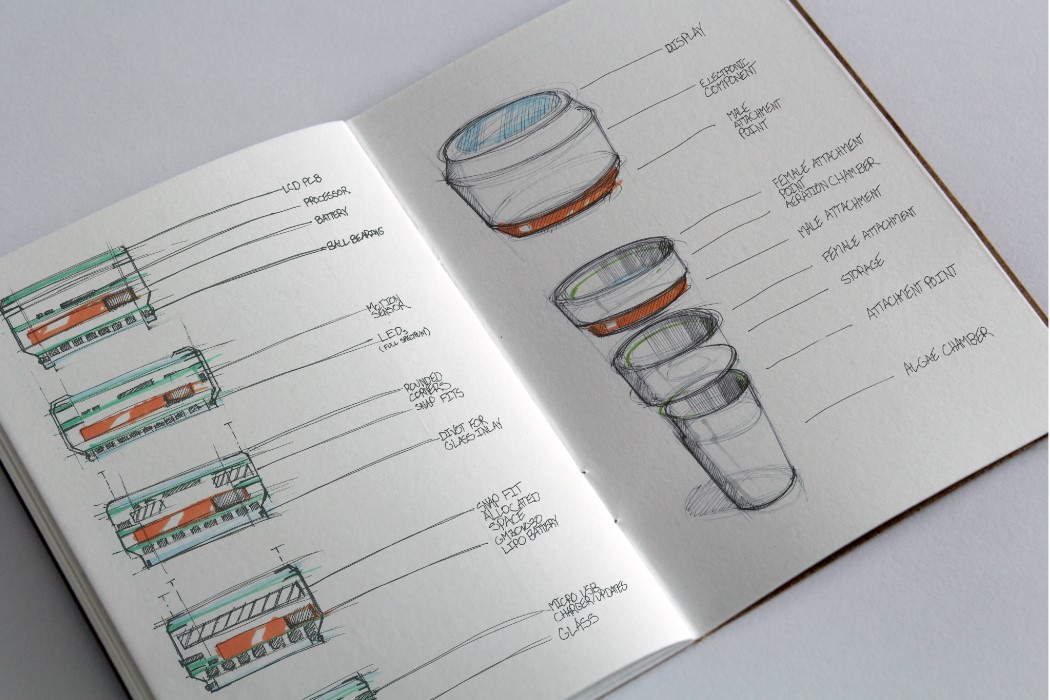 LCD PCB
PROCESSOR
BATTERY
BALL BEARING
MOTION
SENSOR
LEDs
(FULL SPECTRUM)
ROUNDED
CORNERS
SNAP FITS
DIVOT FOR
GLASS INLAY
SNAP FIT
ALLOCATED
SPACE
LIPO BATTERY
MICRO USB
CHARGER/UPDATES
GLASS
DISPLAY
ELECTRONIC
COMPONENT
MALE
ATTACHMENT
POINT
FEMALE ATTACHMENT
POINT
AERATION CHAMBER
MALE ATTACHMENT
FEMALE ATTACHMENT
STORAGE
ATTACHMENT POINT
ALGAE CHAMBER